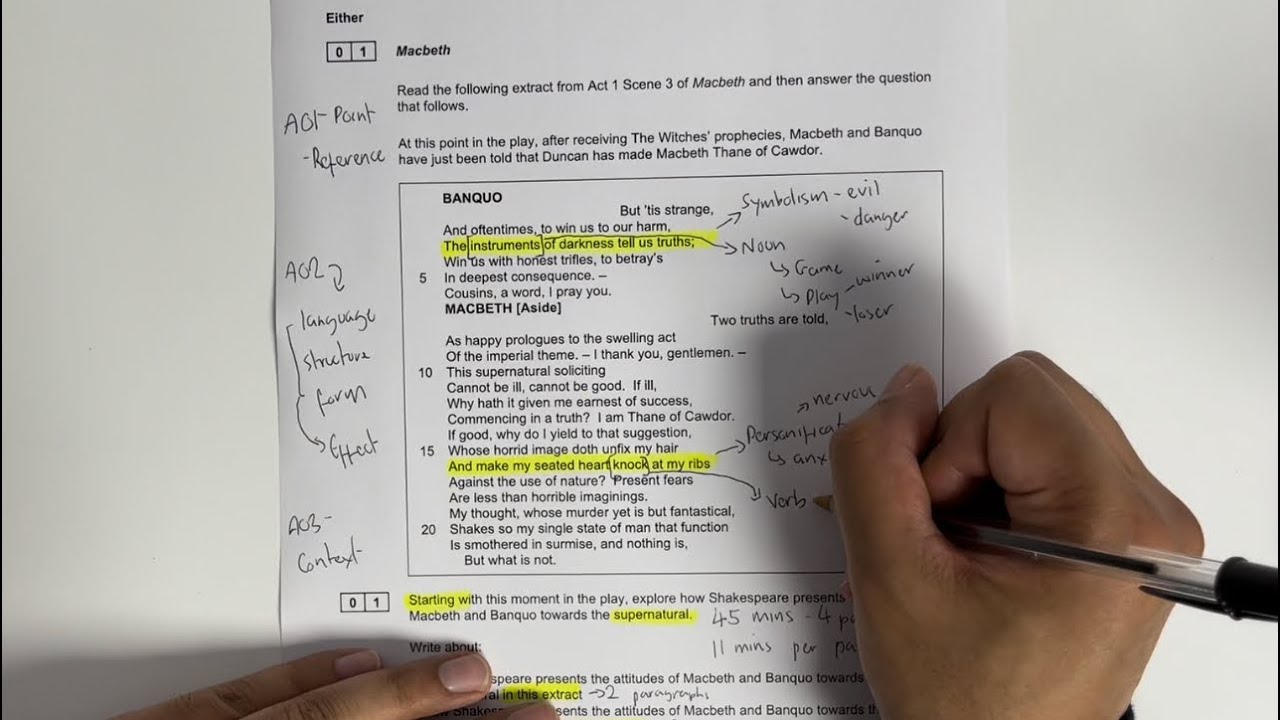 Either
0 1 Macbeth
Read the following extract from Act 1 Scene 3 of Macbeth and then answer the question
that follows.
AO1- Point
-Reference
At this point in the play, after receiving The Witches' prophecies, Macbeth and Banquo
have just been told that Duncan has made Macbeth Thane of Cawdor.
BANQUO
But 'tis strange,
And oftentimes, to win us to our harm,
The instruments of darkness tell us truths;
Win us with honest trifles, to betray's
5 In deepest consequence. –
Cousins, a word, I pray you.
MACBETH [Aside]
Two truths are told,
As happy prologues to the swelling act
Of the imperial theme. – I thank you, gentlemen. –
10 This supernatural soliciting
Cannot be ill, cannot be good. If ill,
Why hath it given me earnest of success,
Commencing in a truth? I am Thane of Cawdor.
If good, why do I yield to that suggestion,
15 Whose horrid image doth unfix my hair
And make my seated heart knock at my ribs
Against the use of nature? Present fears
Are less than horrible imaginings.
My thought, whose murder yet is but fantastical,
20 Shakes so my single state of man that function
Is smothered in surmise, and nothing is,
But what is not.
Symbolism - evil
- danger
Noun
↳ Game
↳ Play - winner
- loser
→ nervou
Personificat
↳ anx
Verb
AO2
language
structure
form
→ Effect
AO3-
Context-
0 1 Starting with this moment in the play, explore how Shakespeare presents
Macbeth and Banquo towards the supernatural.
45 mins - 4 pa
11 mins per pa
Write about:
speare presents the attitudes of Macbeth and Banquo towards
al in this extract → 2 paragraphs
Shakes sents the attitudes of Macbeth and Banquo towards th